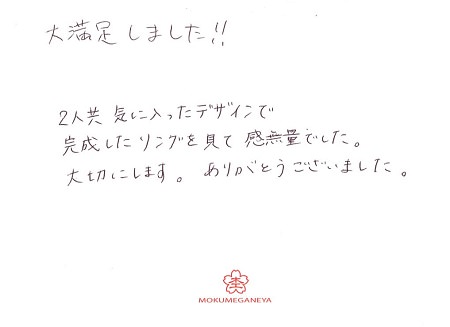 大満足しました!!
2人共 気に入ったデザインで
完成したリングを見て 感無量でした。
大切にします。 ありがとうございました。
MOKUMEGANEYA